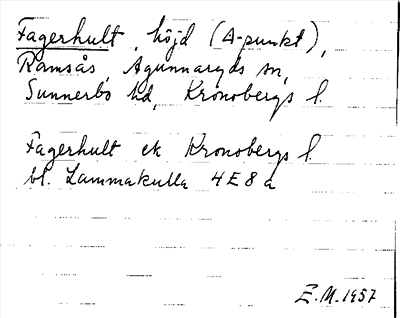 Fagerhult, höjd (A-punkt),
Ramsås, Agunnaryds sn,
Sunnerbo hd, Kronobergs l.
Fagerhult ek Kronobergs l.
bl. Lammakulla 4E8a
E.M. 1957